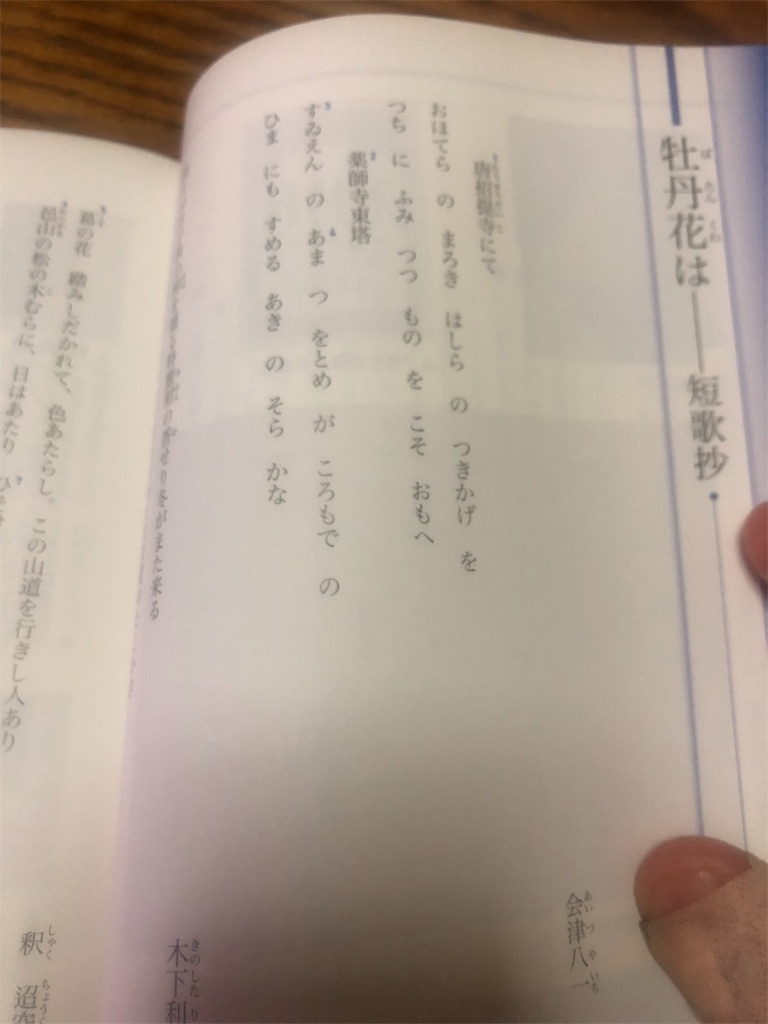 牡丹花は――短歌抄
会津八一
唐招提寺にて
おほてら の まろき はしら の つきかげ を
つち に ふみ つつ もの を こそ おもへ
薬師寺東塔
すゐえん の あま つ をとめ が ころもで の
ひま にも すめる あき の そら かな
木下利
せり冬がまた来る
葛の花 踏みしだかれて、色あたらし。この山道を行きし人あり
山の松の木むらに、日はあたり
釈 迢空